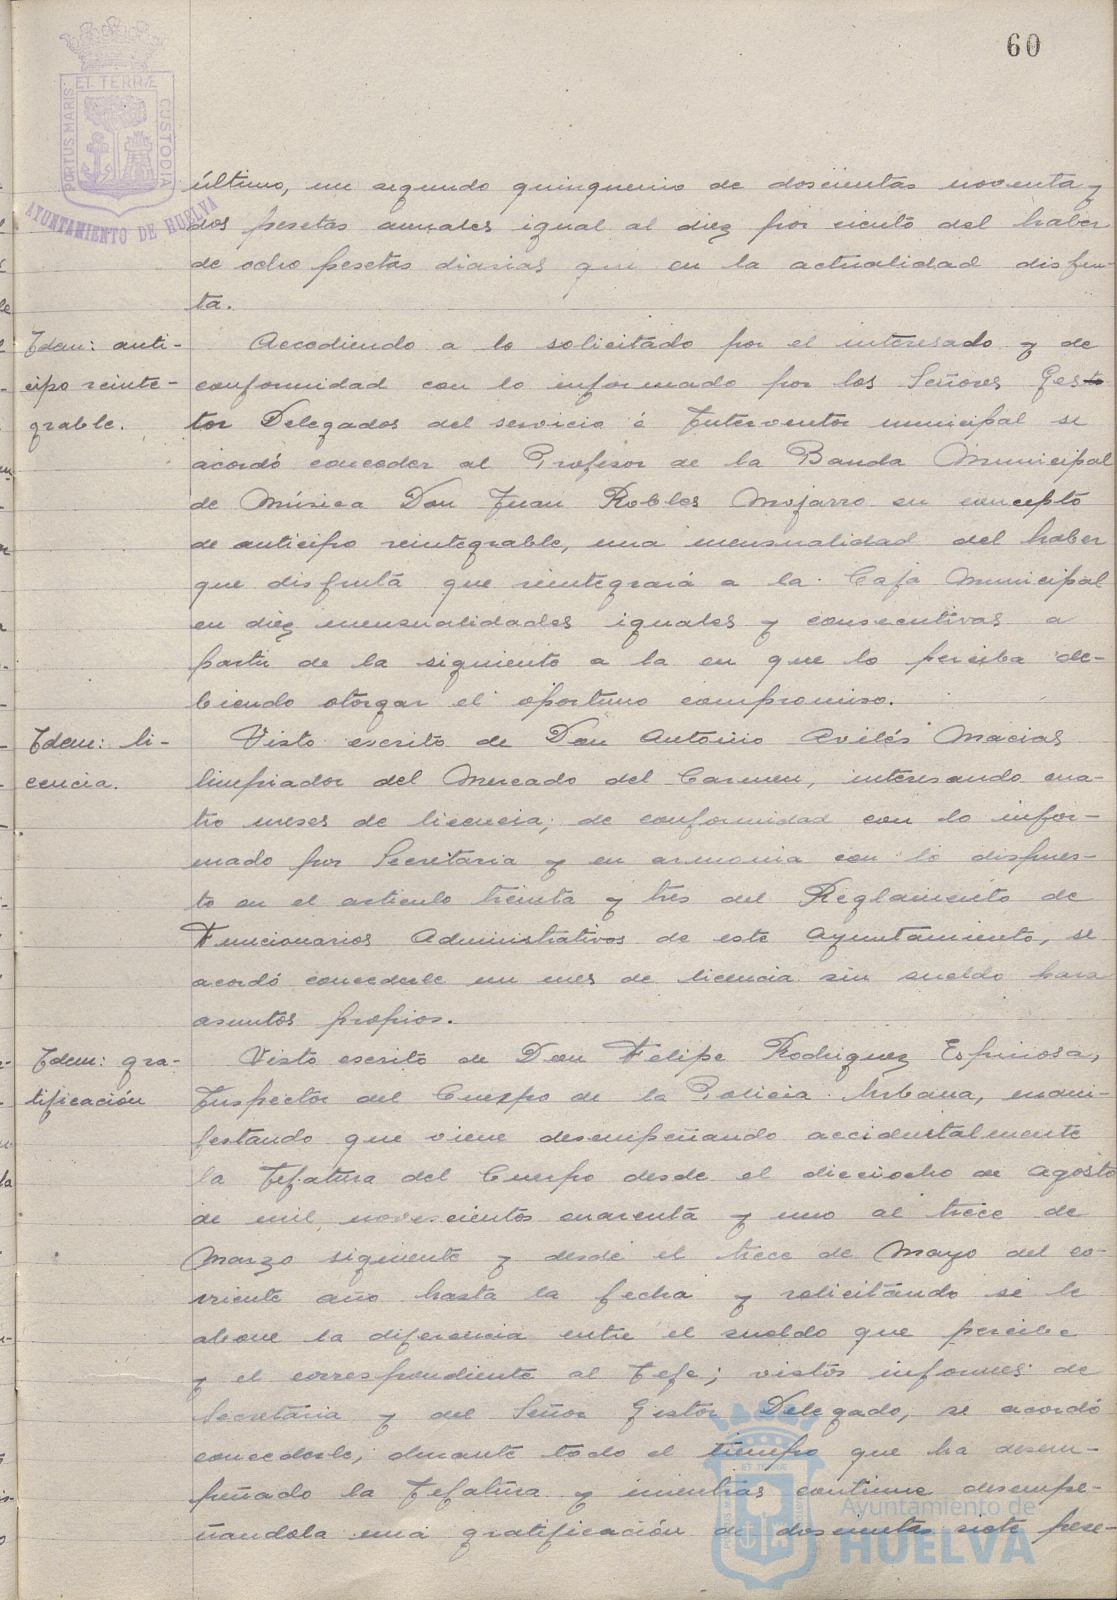 60
PORTUS MARIS ET TERRÆ CUSTODIA
AYUNTAMIENTO DE HUELVA
último, un segundo quinquenio de doscientas noventa y
dos pesetas anuales igual al diez por ciento del haber
de ocho pesetas diarias que en la actualidad disfru-
ta.
Idem: anti-
cipo reinte-
grable.
Accediendo a lo solicitado por el interesado y de
conformidad con lo informado por los Señores Gesto
tor Delegados del servicio é Interventor municipal se
acordó conceder al Profesor de la Banda Municipal
de Música Don Juan Robles Mojarro en concepto
de anticipo reintegrable, una mensualidad del haber
que disfruta que reintegrará a la Caja Municipal
en diez mensualidades iguales y consecutivas a
partir de la siguiente a la en que lo perciba de-
biendo otorgar el oportuno compromiso.
Idem: li-
cencia.
Visto escrito de Don Antonio Avilés Macias
limpiador del Mercado del Carmen, interesando cua-
tro meses de licencia; de conformidad con lo infor-
mado por Secretaria y en armonia con lo dispues-
to en el articulo treinta y tres del Reglamento de
Funcionarios Administrativos de este Ayuntamiento, se
acordó concederle un mes de licencia sin sueldo para
asuntos propios.
Idem: gra-
tificación
Visto escrito de Don Felipe Rodriguez Espinosa,
Inspector del Cuerpo de la Policia Urbana, mani-
festando que viene desempeñando accidentalmente
la Jefatura del Cuerpo desde el dieciocho de Agosto
de mil novescientos cuarenta y uno al trece de
Marzo siguiente y desde el trece de Mayo del co-
rriente año hasta la fecha y solicitando se le
abone la diferencia entre el sueldo que percibe
y el correspondiente al Jefe; vistos informes de
Secretaria y del Señor Gestor Delegado, se acordó
concederle, durante todo el tiempo que ha desem-
peñado la Jefatura y mientras continue desempe-
ñandola una gratificación de doscientas siete pese-
Ayuntamiento de
HUELVA